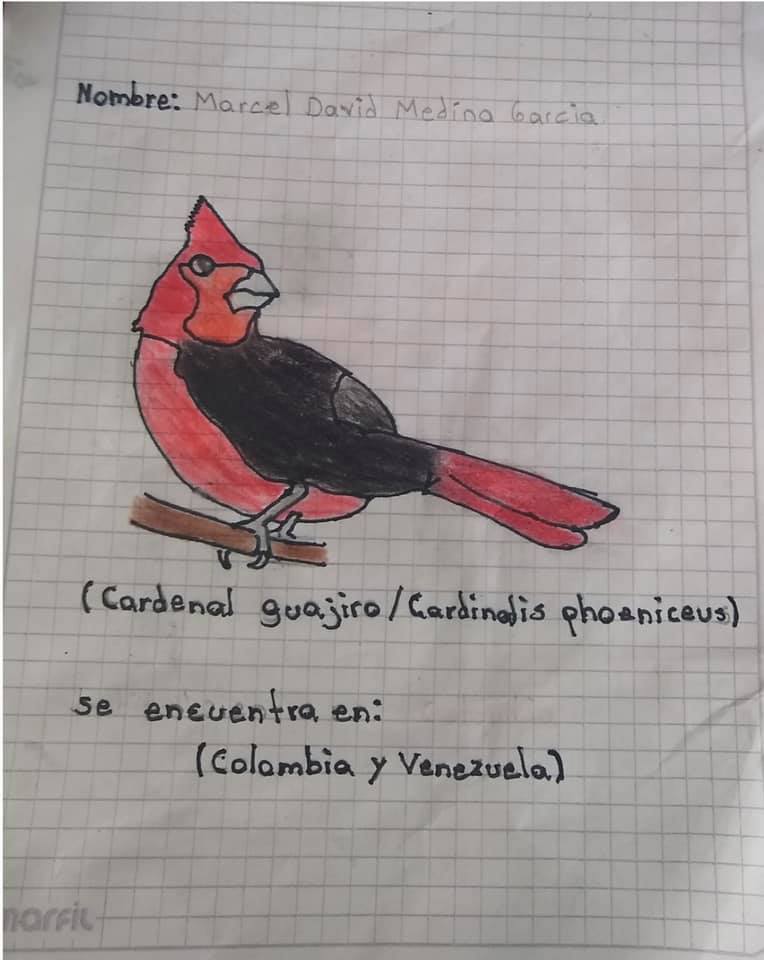 Nombre: Marcel David Medina Garcia
(Cardenal guajiro/Cardinalis phoeniceus)
se encuentra en:
(Colombia y Venezuela)
marfil